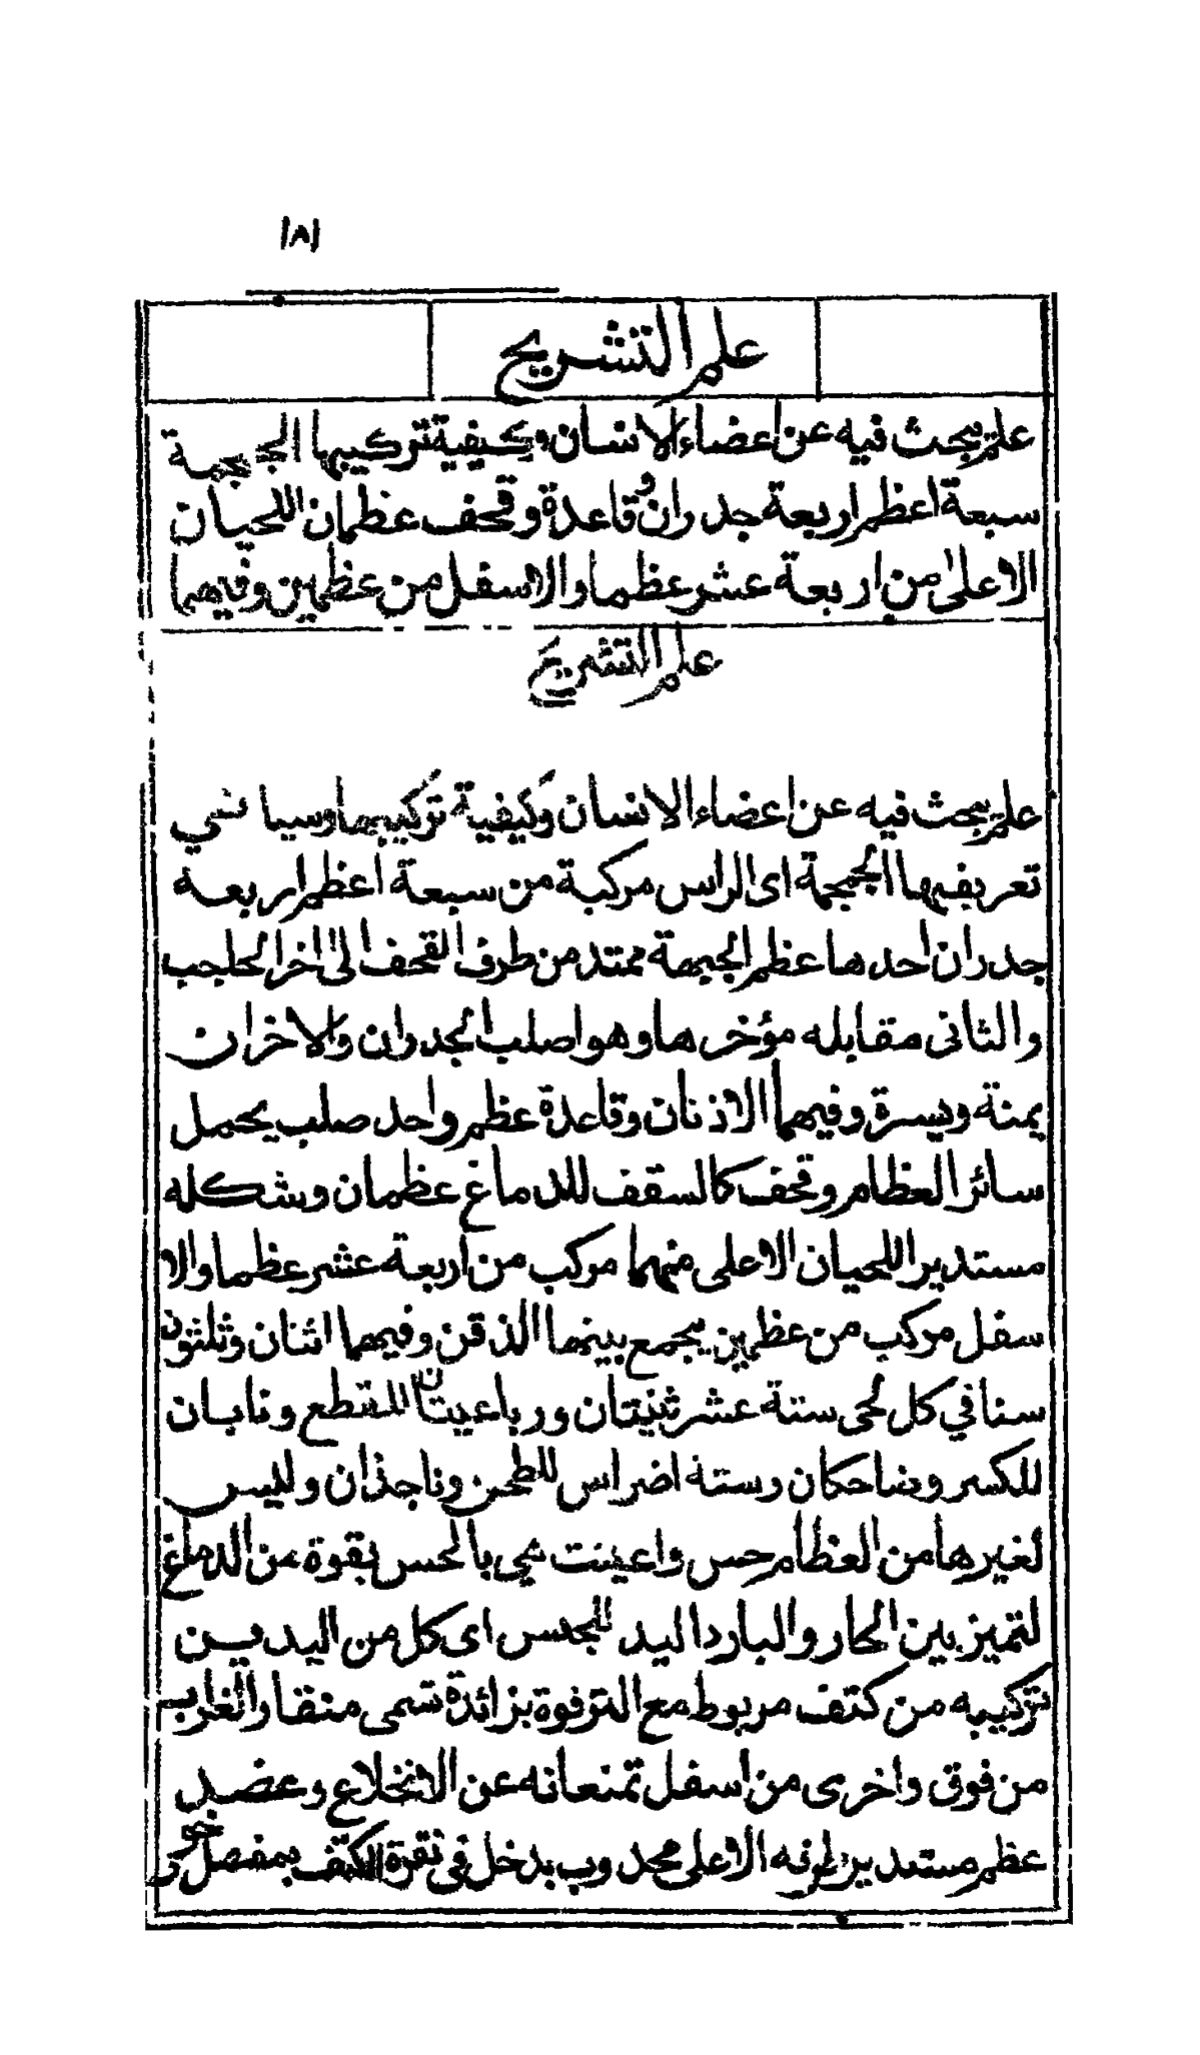 ١٨١
علم التشريح
علم يبحث فيه عن اعضاء الانسان وكيفية تركيبها الجمجمة
سبعة اعظم اربعة جدران وقاعدة وقحف عظمان اللحيان
الاعلى من اربعة عشر عظما والاسفل من عظمين وفيهما
علم التشريح
علم يبحث فيه عن اعضاء الانسان وكيفية تركيبها وسيا تي
تعريفها الجمجمة اى الراس مركبة من سبعة اعظم اربعة
جدران احدها عظم الجبهة ممتد من طرف القحف الى اخر الحاجب
والثانى مقابله مؤخرها وهو اصلب الجدران والاخران
يمنة ويسرة وفيهما الاذنان وقاعدة عظم واحد صلب يحمل
سائر العظام وقحف كالسقف للدماغ عظمان وشكله
مستدير اللحيان الاعلى منهما مركب من اربعة عشر عظما والا
سفل مركب من عظمين يجمع بينهما الذقن وفيهما اثنان وثلثون
سنا في كل لحى ستة عشر ثنيتان ورباعيتان للقطع ونابان
للكسر وضاحكان وستة اضراس للطحن وناجذان وليس
لغيرها من العظام حس واعينت هي بالحس بقوة من الدماغ
لتميز بين الحار والبارد اليد للجنس اى كل من اليدين
تركيبه من كتف مربوط مع الترقوة بزائدة تسمى منقار الغراب
من فوق واخرى من اسفل تمنعانه عن الانخلاع وعضد
عظم مستدير طرفه الاعلى محدوب يدخل فى نقرة الكتف بمفصل رخو